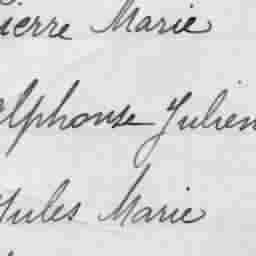 Pierre Marie
Alphonse Julien
Jules Marie